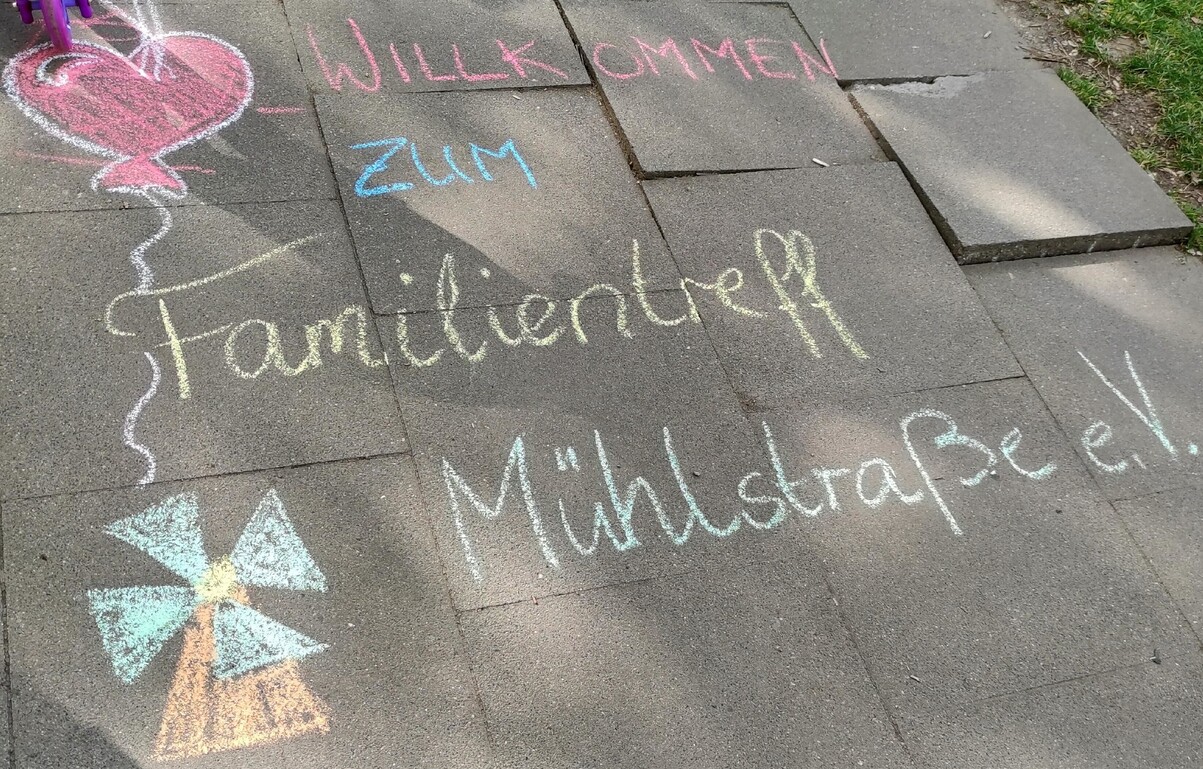 WILLKOMMEN
ZUM
Familientreff
Mühlstraße e.V.